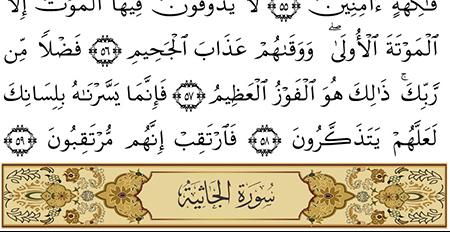 فَٰكِهَةٍ ءَامِنِينَ ﴿٥٥﴾ لَا يَذُوقُونَ فِيهَا ٱلْمَوْتَ إِلَّا
ٱلْمَوْتَةَ ٱلْأُولَىٰ ۖ وَوَقَىٰهُمْ عَذَابَ ٱلْجَحِيمِ ﴿٥٦﴾ فَضْلًا مِّن
رَّبِّكَ ۚ ذَٰلِكَ هُوَ ٱلْفَوْزُ ٱلْعَظِيمُ ﴿٥٧﴾ فَإِنَّمَا يَسَّرْنَٰهُ بِلِسَانِكَ
لَعَلَّهُمْ يَتَذَكَّرُونَ ﴿٥٨﴾ فَٱرْتَقِبْ إِنَّهُم مُّرْتَقِبُونَ ﴿٥٩﴾
سُورَةُ الْجَاثِيَةِ